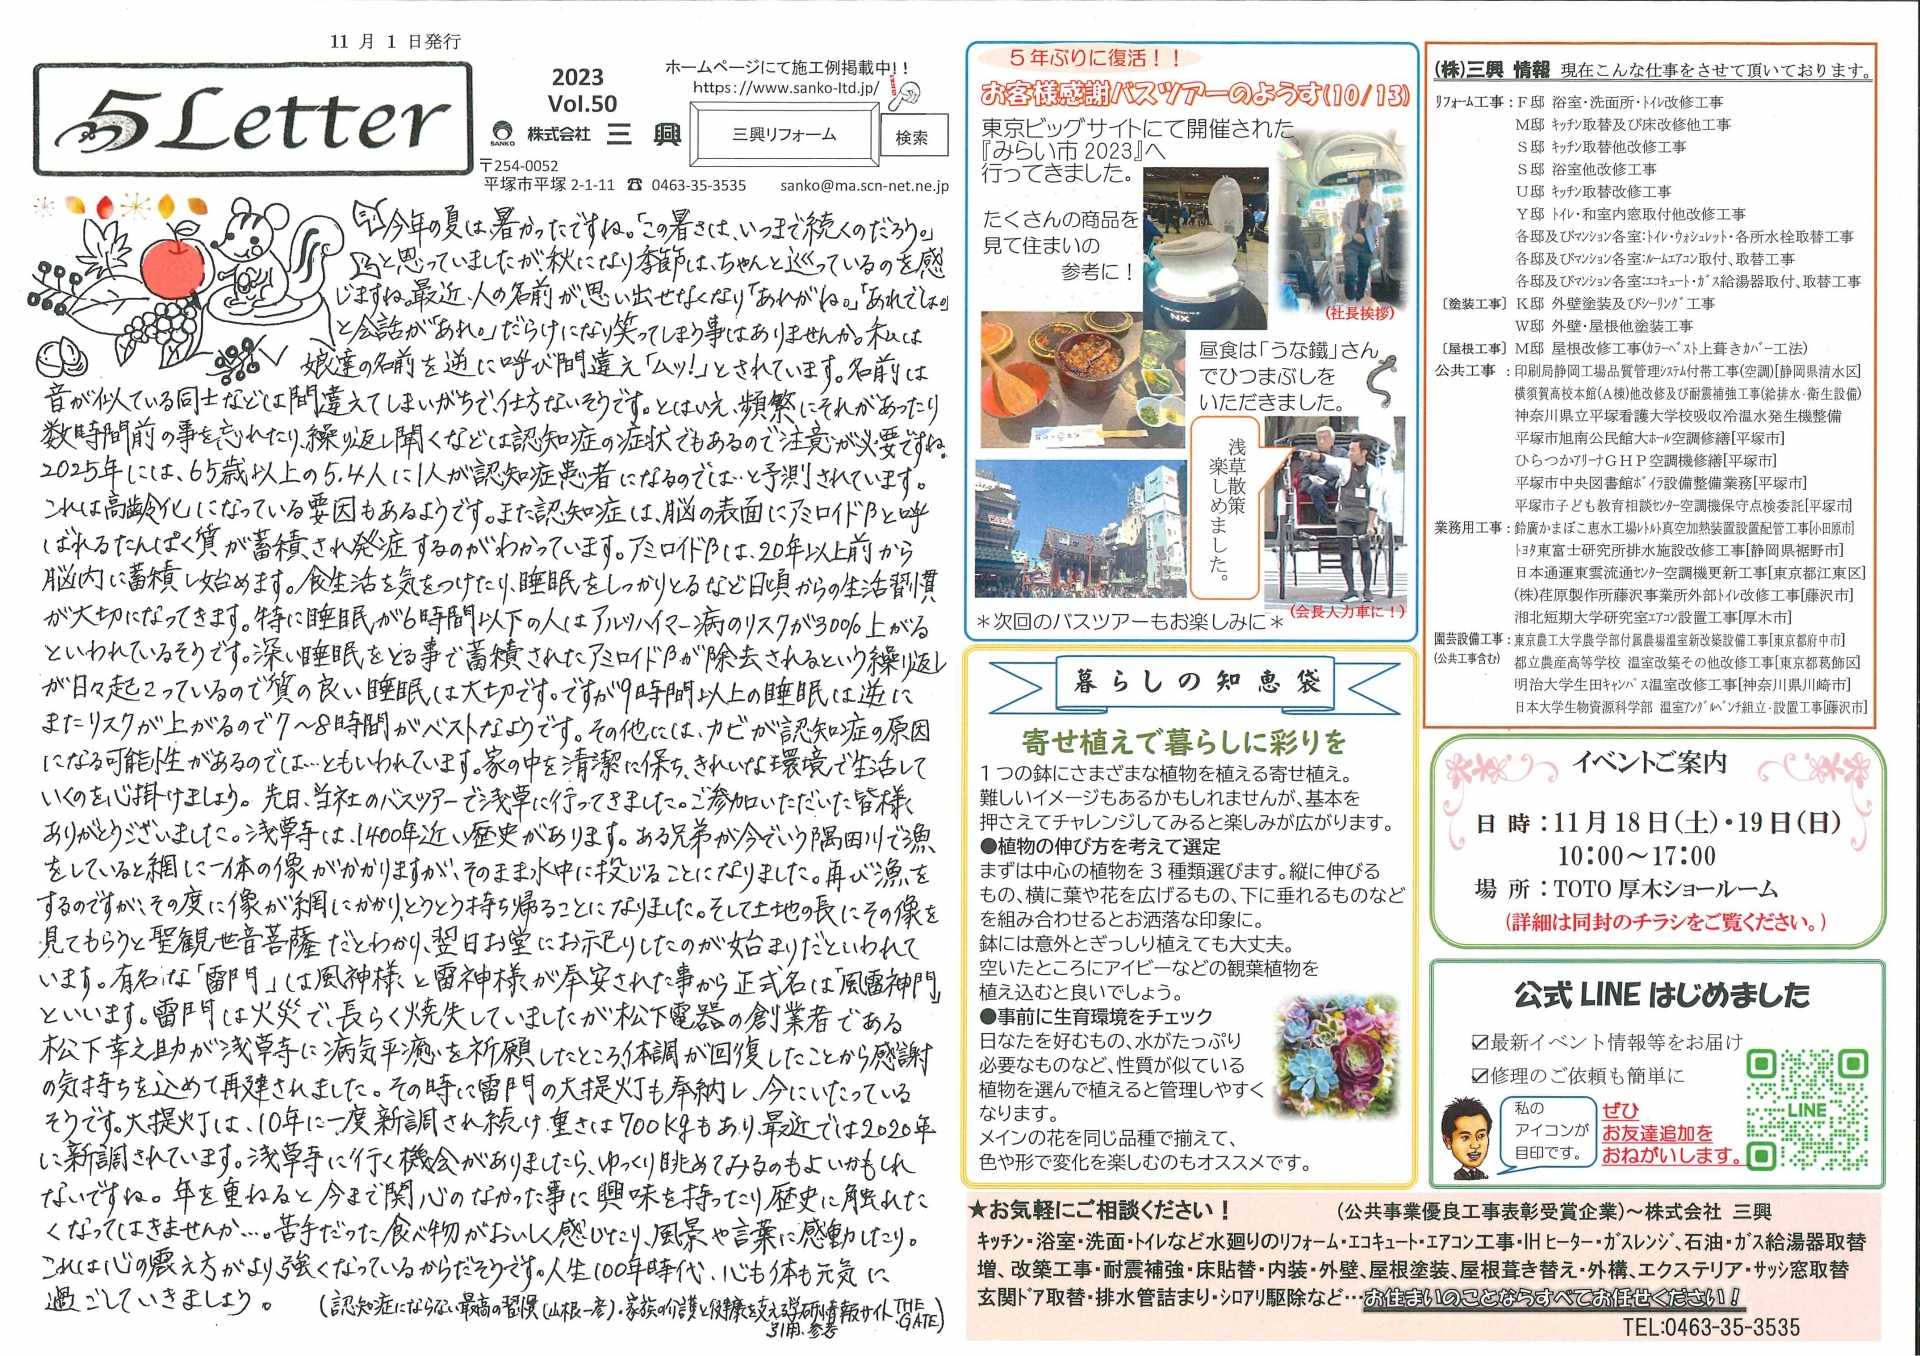 11 月 1 日発行
5 Letter
2023
Vol.50
ホームページにて施工例掲載中!!
https://www.sanko-ltd.jp/
SANKO 株式会社 三 興
三興リフォーム
検索
〒254-0052
平塚市平塚 2-1-11 ☎ 0463-35-3535 sanko@ma.scn-net.ne.jp
今年の夏は暑かったですね。「この暑さは、いつまで続くのだろう。」
と思っていましたが、秋になり季節は、ちゃんと巡っているのを感
じますね。最近、人の名前が思い出せなくなり「あれがね。」「あれでしょ。」
と会話が「あれ。」だらけになり笑ってしまう事はありませんか。私は
娘達の名前を逆に呼び間違え「ムッ!」とされています。名前は
音が似ている同士などは間違えてしまいがちで、仕方ないそうです。とはいえ、頻繁にそれがあったり
数時間前の事を忘れたり、繰り返し聞くなどは認知症の症状でもあるので注意が必要ですね。
2025年には、65歳以上の5.4人に1人が認知症患者になるのでは…と予測されています。
これは高齢化になっている要因もあるようです。また認知症は、脳の表面にアミロイドβと呼
ばれるたんぱく質が蓄積され発症するのがわかっています。アミロイドβは、20年以上前から
脳内に蓄積し始めます。食生活を気をつけたり、睡眠をしっかりとるなど日頃からの生活習慣
が大切になってきます。特に睡眠が6時間以下の人はアルツハイマー病のリスクが30%上がる
といわれているそうです。深い睡眠をとる事で蓄積されたアミロイドβが除去されるという繰り返し
が日々起こっているので質の良い睡眠は大切です。ですが9時間以上の睡眠は逆に
またリスクが上がるので7〜8時間がベストなようです。その他には、カビが認知症の原因
になる可能性があるのでは…ともいわれています。家の中を清潔に保ち、きれいな環境で生活して
いくのを心掛けましょう。先日、当社のバスツアーで浅草に行ってきました。ご参加いただいた皆様、
ありがとうございました。浅草寺は、1400年近い歴史があります。ある兄弟が今でいう隅田川で漁
をしていると網に一体の像がかかりますが、そのまま水中に投じることになりました。再び漁を
するのですが、その度に像が網にかかり、とうとう持ち帰ることになりました。そして土地の長にその像を
見てもらうと聖観世音菩薩だとわかり、翌日お堂にお祀りしたのが始まりだといわれて
います。有名な「雷門」は風神様と雷神様が奉安された事から正式名は「風雷神門」
といいます。雷門は火災で、長らく焼失していましたが松下電器の創業者である
松下幸之助が浅草寺に病気平癒を祈願したところ、体調が回復したことから感謝
の気持ちを込めて再建されました。その時に雷門の大提灯も奉納し、今にいたっている
そうです。大提灯は、10年に一度新調され続け、重さは700kgもあり、最近では2020年
に新調されています。浅草寺に行く機会がありましたら、ゆっくり眺めてみるのもよいかもしれ
ないですね。年を重ねると今まで関心のなかった事に興味を持ったり歴史に触れた
くなってはきませんか…。苦手だった食べ物がおいしく感じたり、風景や言葉に感動したり。
これは心の震え方がより強くなっているからだそうです。人生100年時代、心も体も元気に
過ごしていきましょう。(認知症にならない最高の習慣(山根一彦)・家族の介護と健康を支える学研の情報サイト THE GATE)
引用、参考
5年ぶりに復活!!
お客様感謝バスツアーのようす(10/13)
東京ビッグサイトにて開催された
『みらい市 2023』へ
行ってきました。
たくさんの商品を
見て住まいの
参考に!
NX
(社長挨拶)
昼食は「うな鐵」さん
でひつまぶしを
いただきました。
浅草散策
楽しめました。
(会長人力車に!)
＊次回のバスツアーもお楽しみに＊
暮らしの知恵袋
寄せ植えで暮らしに彩りを
1つの鉢にさまざまな植物を植える寄せ植え。
難しいイメージもあるかもしれませんが、基本を
押さえてチャレンジしてみると楽しみが広がります。
●植物の伸び方を考えて選定
まずは中心の植物を3種類選びます。縦に伸びる
もの、横に葉や花を広げるもの、下に垂れるものなど
を組み合わせるとお洒落な印象に。
鉢には意外とぎっしり植えても大丈夫。
空いたところにアイビーなどの観葉植物を
植え込むと良いでしょう。
●事前に生育環境をチェック
日なたを好むもの、水がたっぷり
必要なものなど、性質が似ている
植物を選んで植えると管理しやすく
なります。
メインの花を同じ品種で揃えて、
色や形で変化を楽しむのもオススメです。
(株)三興 情報 現在こんな仕事をさせて頂いております。
ﾘﾌｫｰﾑ工事：F邸 浴室・洗面所・ﾄｲﾚ改修工事
M邸 ｷｯﾁﾝ取替及び床改修他工事
S邸 ｷｯﾁﾝ取替他改修工事
S邸 浴室他改修工事
U邸 ｷｯﾁﾝ取替改修工事
Y邸 ﾄｲﾚ・和室内窓取付他改修工事
各邸及びﾏﾝｼｮﾝ各室:ﾄｲﾚ・ｳｫｼｭﾚｯﾄ・各所水栓取替工事
各邸及びﾏﾝｼｮﾝ各室:ﾙｰﾑｴｱｺﾝ取付、取替工事
各邸及びﾏﾝｼｮﾝ各室:ｴｺｷｭｰﾄ・ｶﾞｽ給湯器取付、取替工事
〔塗装工事〕K邸 外壁塗装及びｼｰﾘﾝｸﾞ工事
W邸 外壁・屋根他塗装工事
〔屋根工事〕M邸 屋根改修工事(ｶﾗｰﾍﾞｽﾄ上葺きｶﾊﾞｰ工法)
公共工事：印刷局静岡工場品質管理ｼｽﾃﾑ付帯工事(空調)[静岡県清水区]
横須賀高校本館(A棟)他改修及び耐震補強工事(給排水・衛生設備)
神奈川県立平塚看護大学校吸収冷温水発生機整備
平塚市旭南公民館大ﾎｰﾙ空調修繕[平塚市]
ひらつかｱﾘｰﾅGHP空調機修繕[平塚市]
平塚市中央図書館ﾎﾞｲﾗ設備整備業務[平塚市]
平塚市子ども教育相談ｾﾝﾀｰ空調機保守点検委託[平塚市]
業務用工事：鈴廣かまぼこ恵水工場ﾚﾄﾙﾄ真空加熱装置設置配管工事[小田原市]
ﾄﾖﾀ東富士研究所排水施設改修工事[静岡県裾野市]
日本通運東雲流通ｾﾝﾀｰ空調機更新工事[東京都江東区]
(株)荏原製作所藤沢事業所外部ﾄｲﾚ改修工事[藤沢市]
湘北短期大学研究室ｴｱｺﾝ設置工事[厚木市]
園芸設備工事：東京農工大学農学部付属農場温室新改築設備工事[東京都府中市]
(公共工事含む) 都立農産高等学校 温室改築その他改修工事[東京都葛飾区]
明治大学生田ｷｬﾝﾊﾟｽ温室改修工事[神奈川県川崎市]
日本大学生物資源科学部 温室ｱﾝｸﾞﾙﾍﾞﾝﾁ組立・設置工事[藤沢市]
イベントご案内
日 時：11月18日(土)・19日(日)
10：00～17：00
場 所：TOTO 厚木ショールーム
(詳細は同封のチラシをご覧ください。)
公式 LINE はじめました
☑最新イベント情報等をお届け
☑修理のご依頼も簡単に
私の
アイコンが
目印です。
ぜひ
お友達追加を
おねがいします。
LINE
★お気軽にご相談ください! (公共事業優良工事表彰受賞企業)～株式会社 三興
ｷｯﾁﾝ・浴室・洗面・ﾄｲﾚなど水廻りのﾘﾌｫｰﾑ・ｴｺｷｭｰﾄ・ｴｱｺﾝ工事・IHヒーター・ｶﾞｽﾚﾝｼﾞ、石油・ｶﾞｽ給湯器取替
増、改築工事・耐震補強・床貼替・内装・外壁、屋根塗装、屋根葺き替え・外構、エクステリア・ｻｯｼ窓取替
玄関ﾄﾞｱ取替・排水管詰まり・ｼﾛｱﾘ駆除など…お住まいのことならすべてお任せください!
TEL:0463-35-3535